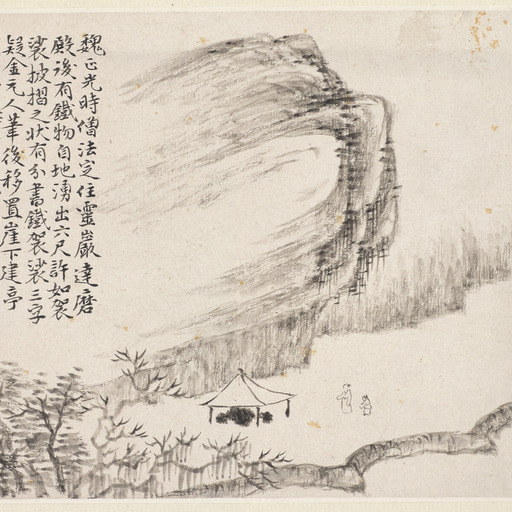 魏正光時僧法定住靈巖達磨
殿後有鐵物自地湧出六尺許如袈
裟披摺之狀有分書鐵袈裟三字
疑金元人筆後移置崖下建亭